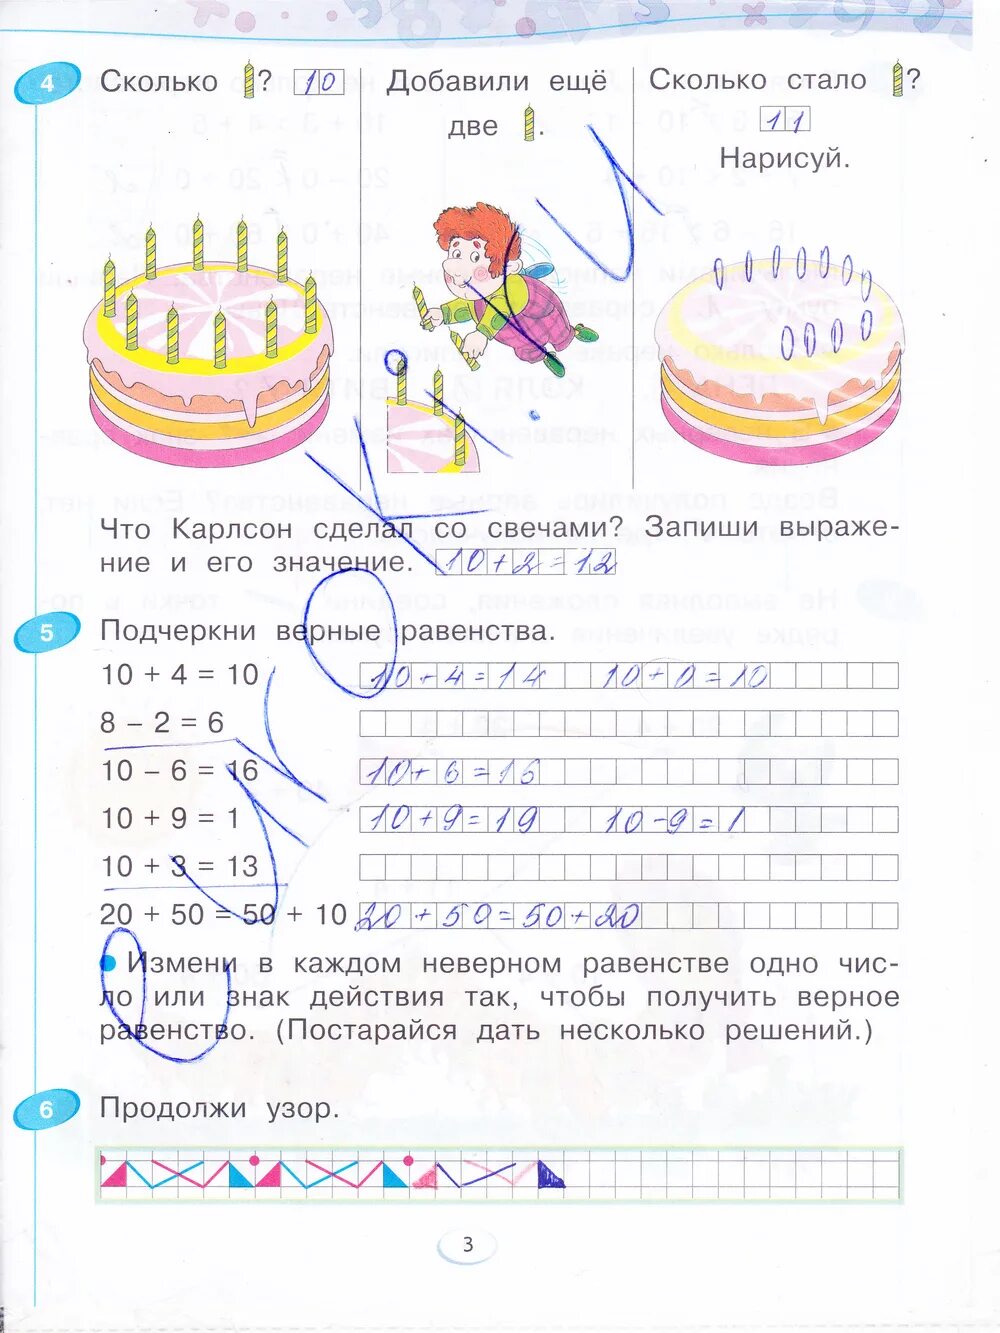 4 Сколько ? 10
Добавили ещё
две .
Сколько стало ?
11
Нарисуй.
Что Карлсон сделал со свечами? Запиши выраже-
ние и его значение. 10+2=12
5 Подчеркни верные равенства.
10 + 4 = 10 10+4=14 10+0=10
8 – 2 = 6
10 – 6 = 16 10+6=16
10 + 9 = 1 10+9=19 10-9=1
10 + 3 = 13
20 + 50 = 50 + 10 20+50=50+20
• Измени в каждом неверном равенстве одно чис-
ло или знак действия так, чтобы получить верное
равенство. (Постарайся дать несколько решений.)
6 Продолжи узор.
3